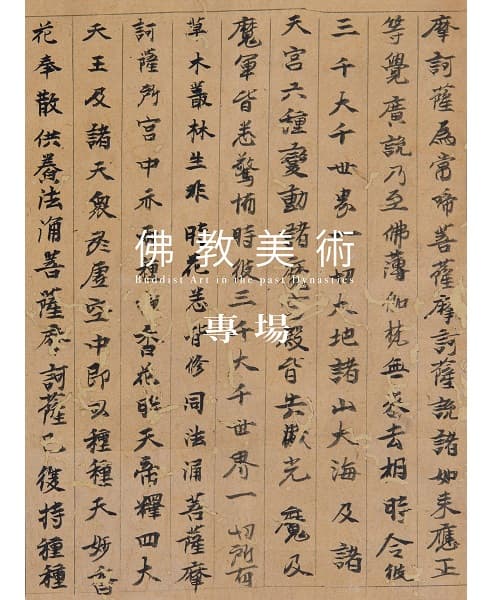 摩訶薩為常啼菩薩摩訶薩說諸如來應正
等覺廣說乃至佛薄伽梵無來去相時令彼
三千大千世界一切大地諸山大海及諸
天宮六種變動諸魔宮殿皆失威光魔及
魔軍皆悉驚怖時彼三千大千世界一切所有
草木叢林生非時花悉皆傾向法涌菩薩摩
訶薩所空中亦雨種種香花時天帝釋四大
天王及諸天眾於虛空中即以種種天妙香
花奉散供養法涌菩薩摩訶薩已復持種種
佛教美術
Buddhist Art in the past Dynasties
專場